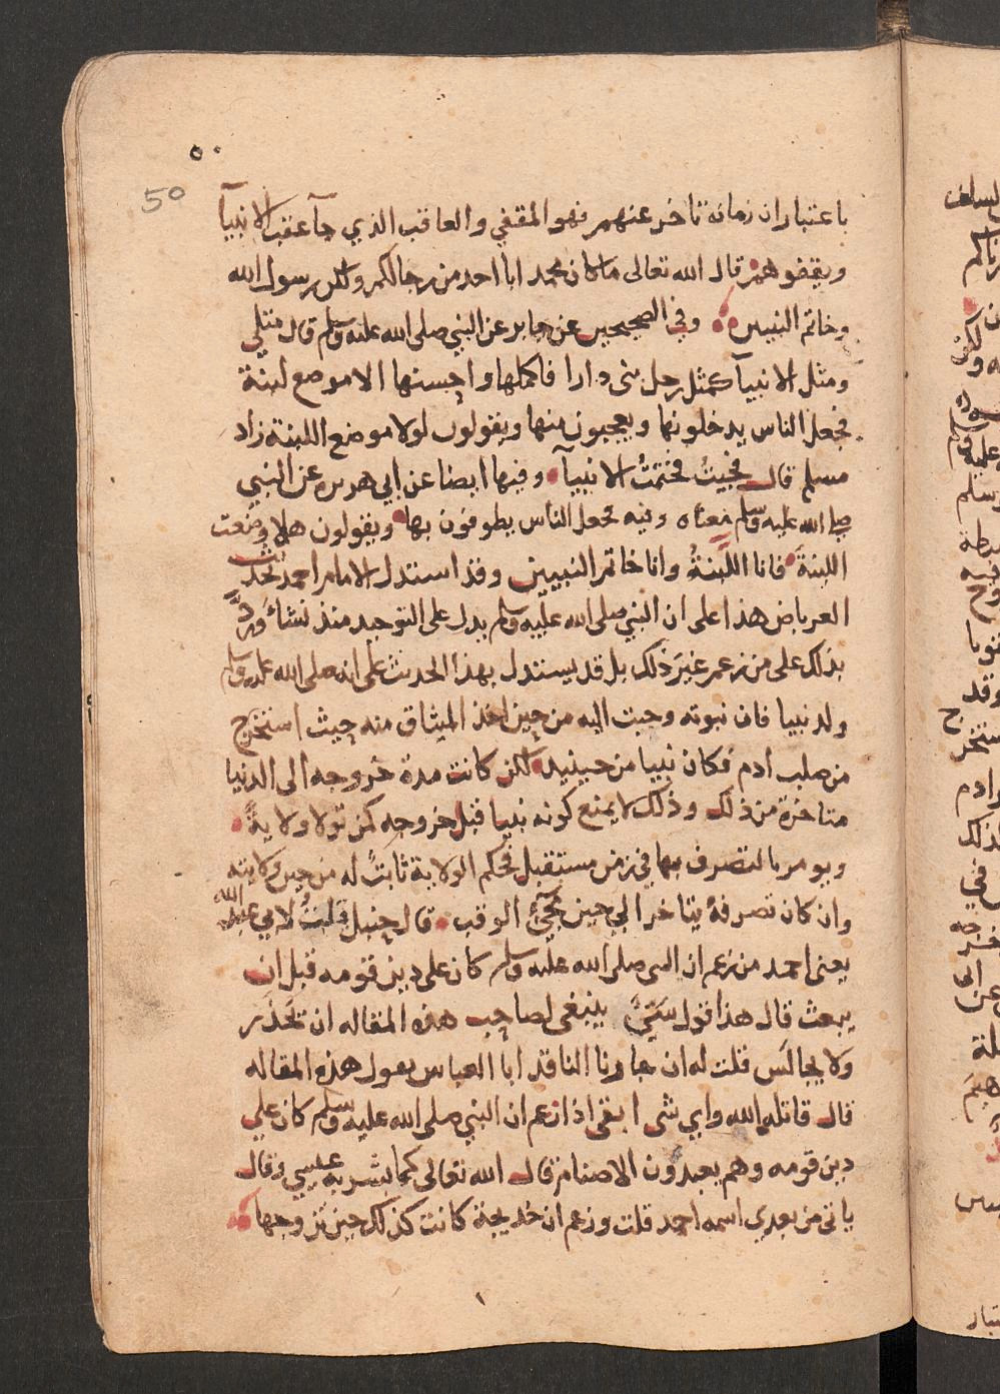 ٥٠
50
باعتبار ان زمانه تاخر عنهم فهو المقفي والعاقب الذي جآ عقب الانبيآ
ويقفوهم قال الله تعالى ماكان محمد ابا احد من رجالكم ولكن رسول الله
وخاتم النبيين وفي الصحيحين عن جابر عن النبي صلى الله عليه وسلم قال مثلي
ومثل الانبيآ كمثل رجل بنى دارا فاكملها واحسنها الا موضع لبنة
فجعل الناس يدخلونها ويعجبون منها ويقولون لولا موضع اللبنة زاد
مسلم قال فجيتُ فختمتُ الانبيآ وفيها ايضا عن ابي هريره عن النبي
صلى الله عليه وسلم معناه وفيه فجعل الناس يطوفون بها ويقولون هلا وضعت
اللبنةَ فانا اللَّبنةُ وانا خاتم النبيين وقد استدل الامام احمد بحديث
العرباض هذا على ان النبي صلى الله عليه وسلم يدل على التوحيد منذ نشاء وردَّ
بذلك على من زعم غيرَ ذلك بل قد يستدل بهذا الحديث على انه صلى الله عليه وسلم
ولد نبيا فان نبوته وجبت اليه من حين اخذ الميثاق منه حيث استخرج
من صلب ادم فكان نبيا من حينيد لكن كانت مدة خروجه الى الدنيا
متاخرة من ذلك وذلك لا يمنع كونه نبيا قبل خروجه كمن تولا ولايةً
ويومر بالتصرف بها في زمن مستقبل فحكم الولاية ثابتٌ له من حين ولايته
وان كان تصرفهُ يتاخر الى حين مجيْ الوقب قال حنبل قلتُ لابي عبد الله
يعني احمد من زعم ان النبي صلى الله عليه وسلم كان على دين قومه قبل ان
يبعث قال هذا قول سَيْءٌ ينبغى لصاحب هذه المقاله ان تحذَر
ولا يجالَس قلت له ان جارنا الناقد ابا العباس يقول هذه المقاله
قال قاتله الله واي شى ابقى اذا زعم ان النبي صلى الله عليه وسلم كان علي
دين قومه وهم يعبدون الاصنام قال الله تعالى كما بشر به عيسي وقال
ياتي من بعدي اسمه احمد قلت وزعم ان خديجة كانت كذلك حين تزوجها